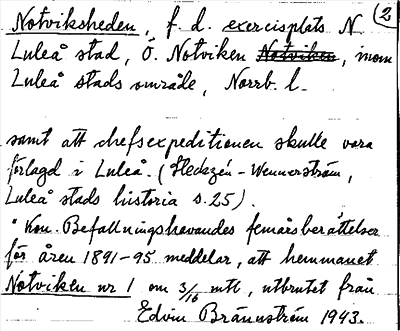 Notviksheden, f. d. exercisplats N (2
Luleå stad, Ö. Notviken Notviken, inom
Luleå stads område, Norrb. l.
samt att chefsexpeditionen skulle vara
förlagd i Luleå. (Steckzén-Wennerström,
Luleå stads historia s. 25).
"Kon. Befallningshavandes femårsberättelser
för åren 1891-95 meddelar, att hemmanet
Notviken nr 1 om 3/16 mtl, utbrutet från
Edvin Brännström 1943.